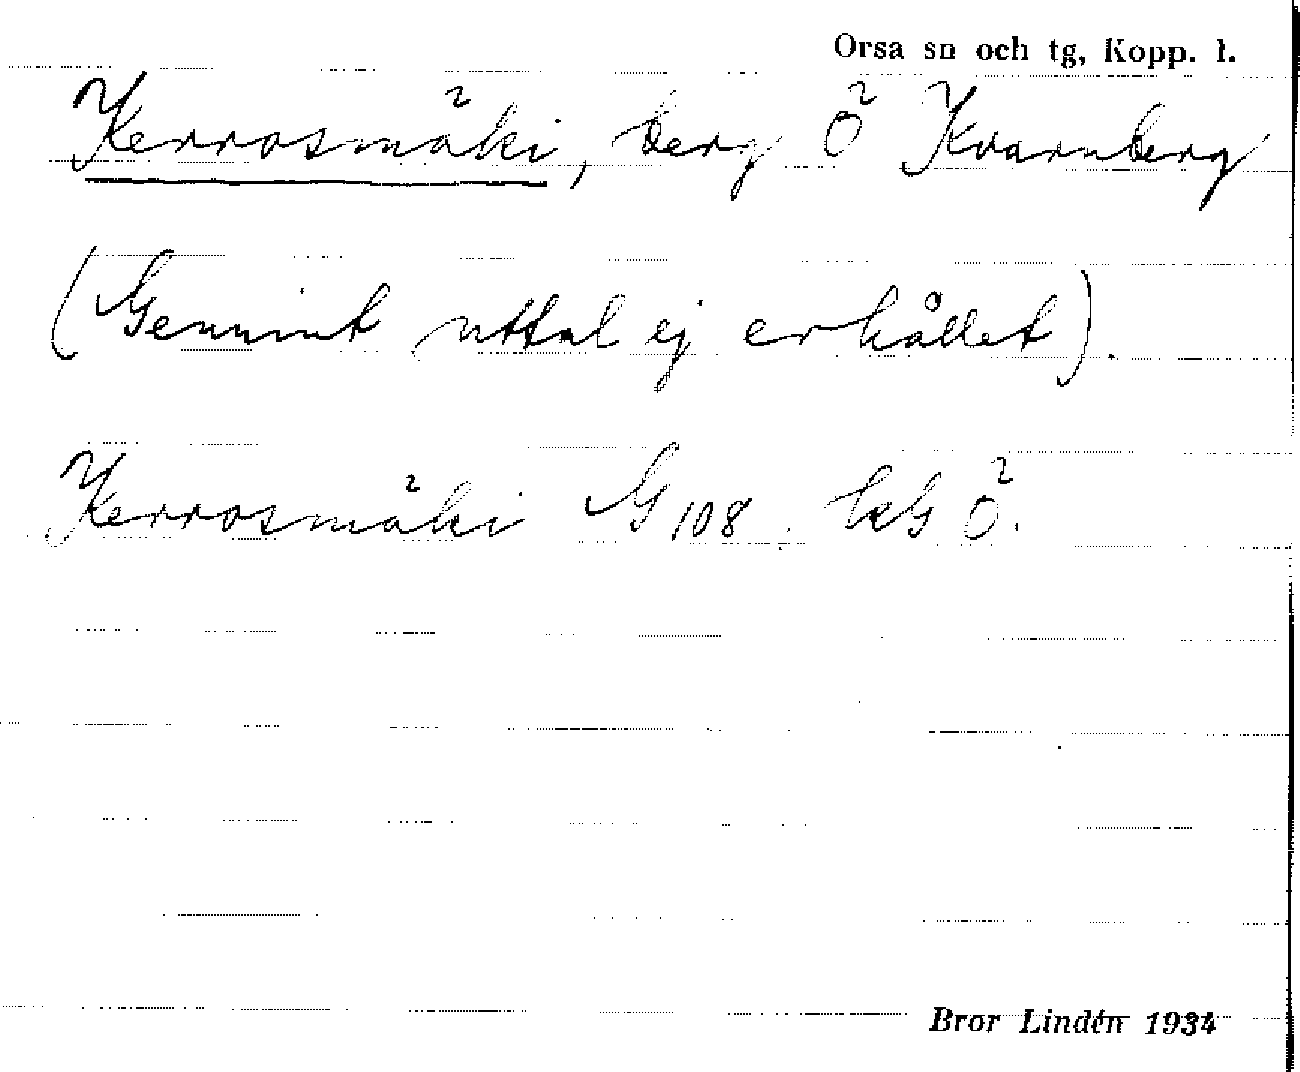 Orsa sn och tg, Kopp. l.
Kerrosmäki, berg Ö Kvarnberg
(Genuint uttal ej erhållet).
Kerrosmäki G 108. kbl Ö.
Bror Lindén 1934